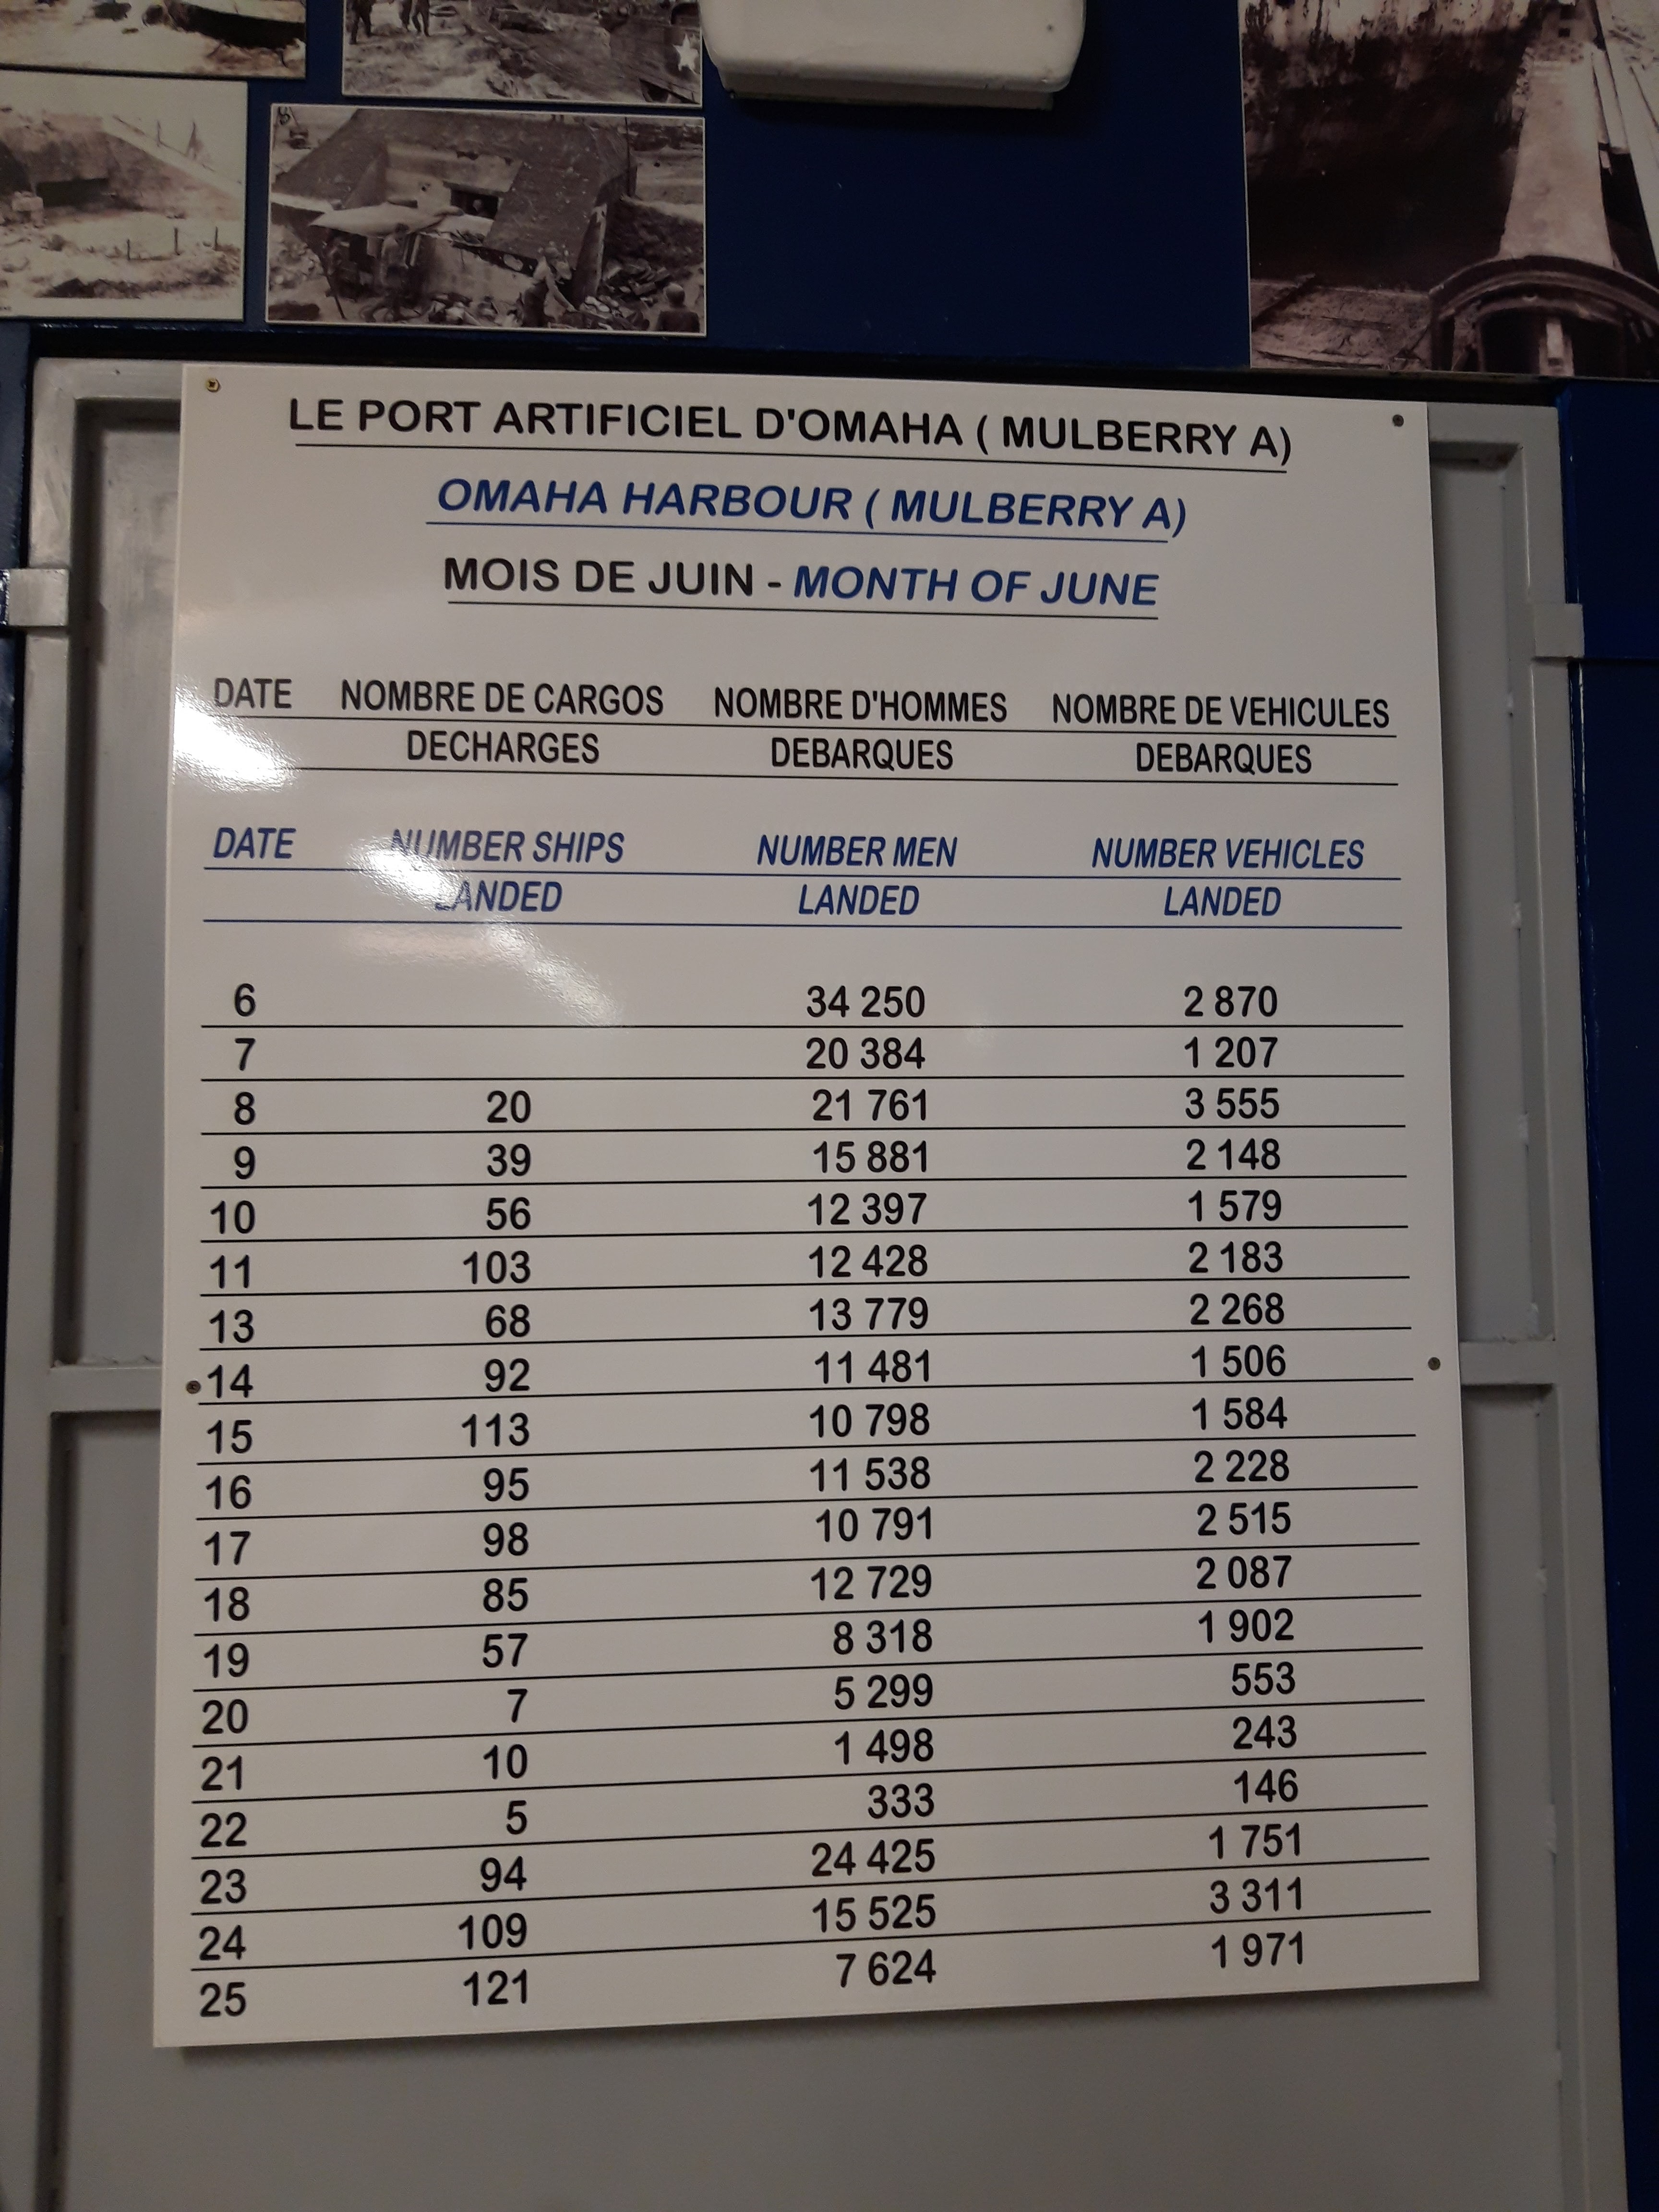 LE PORT ARTIFICIEL D'OMAHA ( MULBERRY A)
OMAHA HARBOUR ( MULBERRY A)
MOIS DE JUIN - MONTH OF JUNE
DATE NOMBRE DE CARGOS NOMBRE D'HOMMES NOMBRE DE VEHICULES
DECHARGES DEBARQUES DEBARQUES
DATE NUMBER SHIPS NUMBER MEN NUMBER VEHICLES
LANDED LANDED LANDED
6 34 250 2 870
7 20 384 1 207
8 20 21 761 3 555
9 39 15 881 2 148
10 56 12 397 1 579
11 103 12 428 2 183
13 68 13 779 2 268
14 92 11 481 1 506
15 113 10 798 1 584
16 95 11 538 2 228
17 98 10 791 2 515
18 85 12 729 2 087
19 57 8 318 1 902
20 7 5 299 553
21 10 1 498 243
22 5 333 146
23 94 24 425 1 751
24 109 15 525 3 311
25 121 7 624 1 971